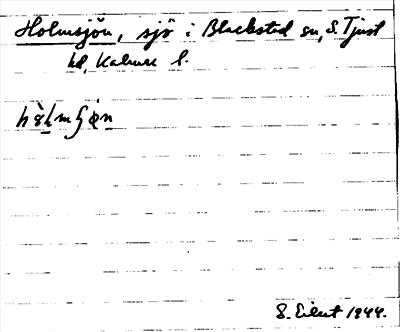 Holmsjön, sjö i Blackstad sn, S. Tjust
hd, Kalmar l.
hòlmʃøn
S. Eilert 1944.